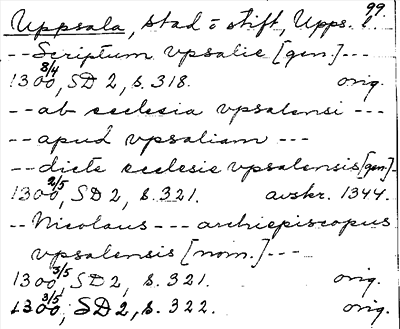 99.
Uppsala, stad o stift, Upps. l.
--Scriptum vpsalie [gen.]---
1300 8/4, SD 2, s. 318. orig.
--ab ecclesia vpsalensi ---
--apud vpsaliam ---
--dicte ecclesie vpsalensis [gen.]-
1300 2/5, SD 2, s. 321. avskr. 1344.
--Nicolaus --- archiepiscopus
vpsalensis [nom.]---
1300 3/5, SD 2, s. 321. orig.
1300 3/5, SD 2, s. 322. orig.